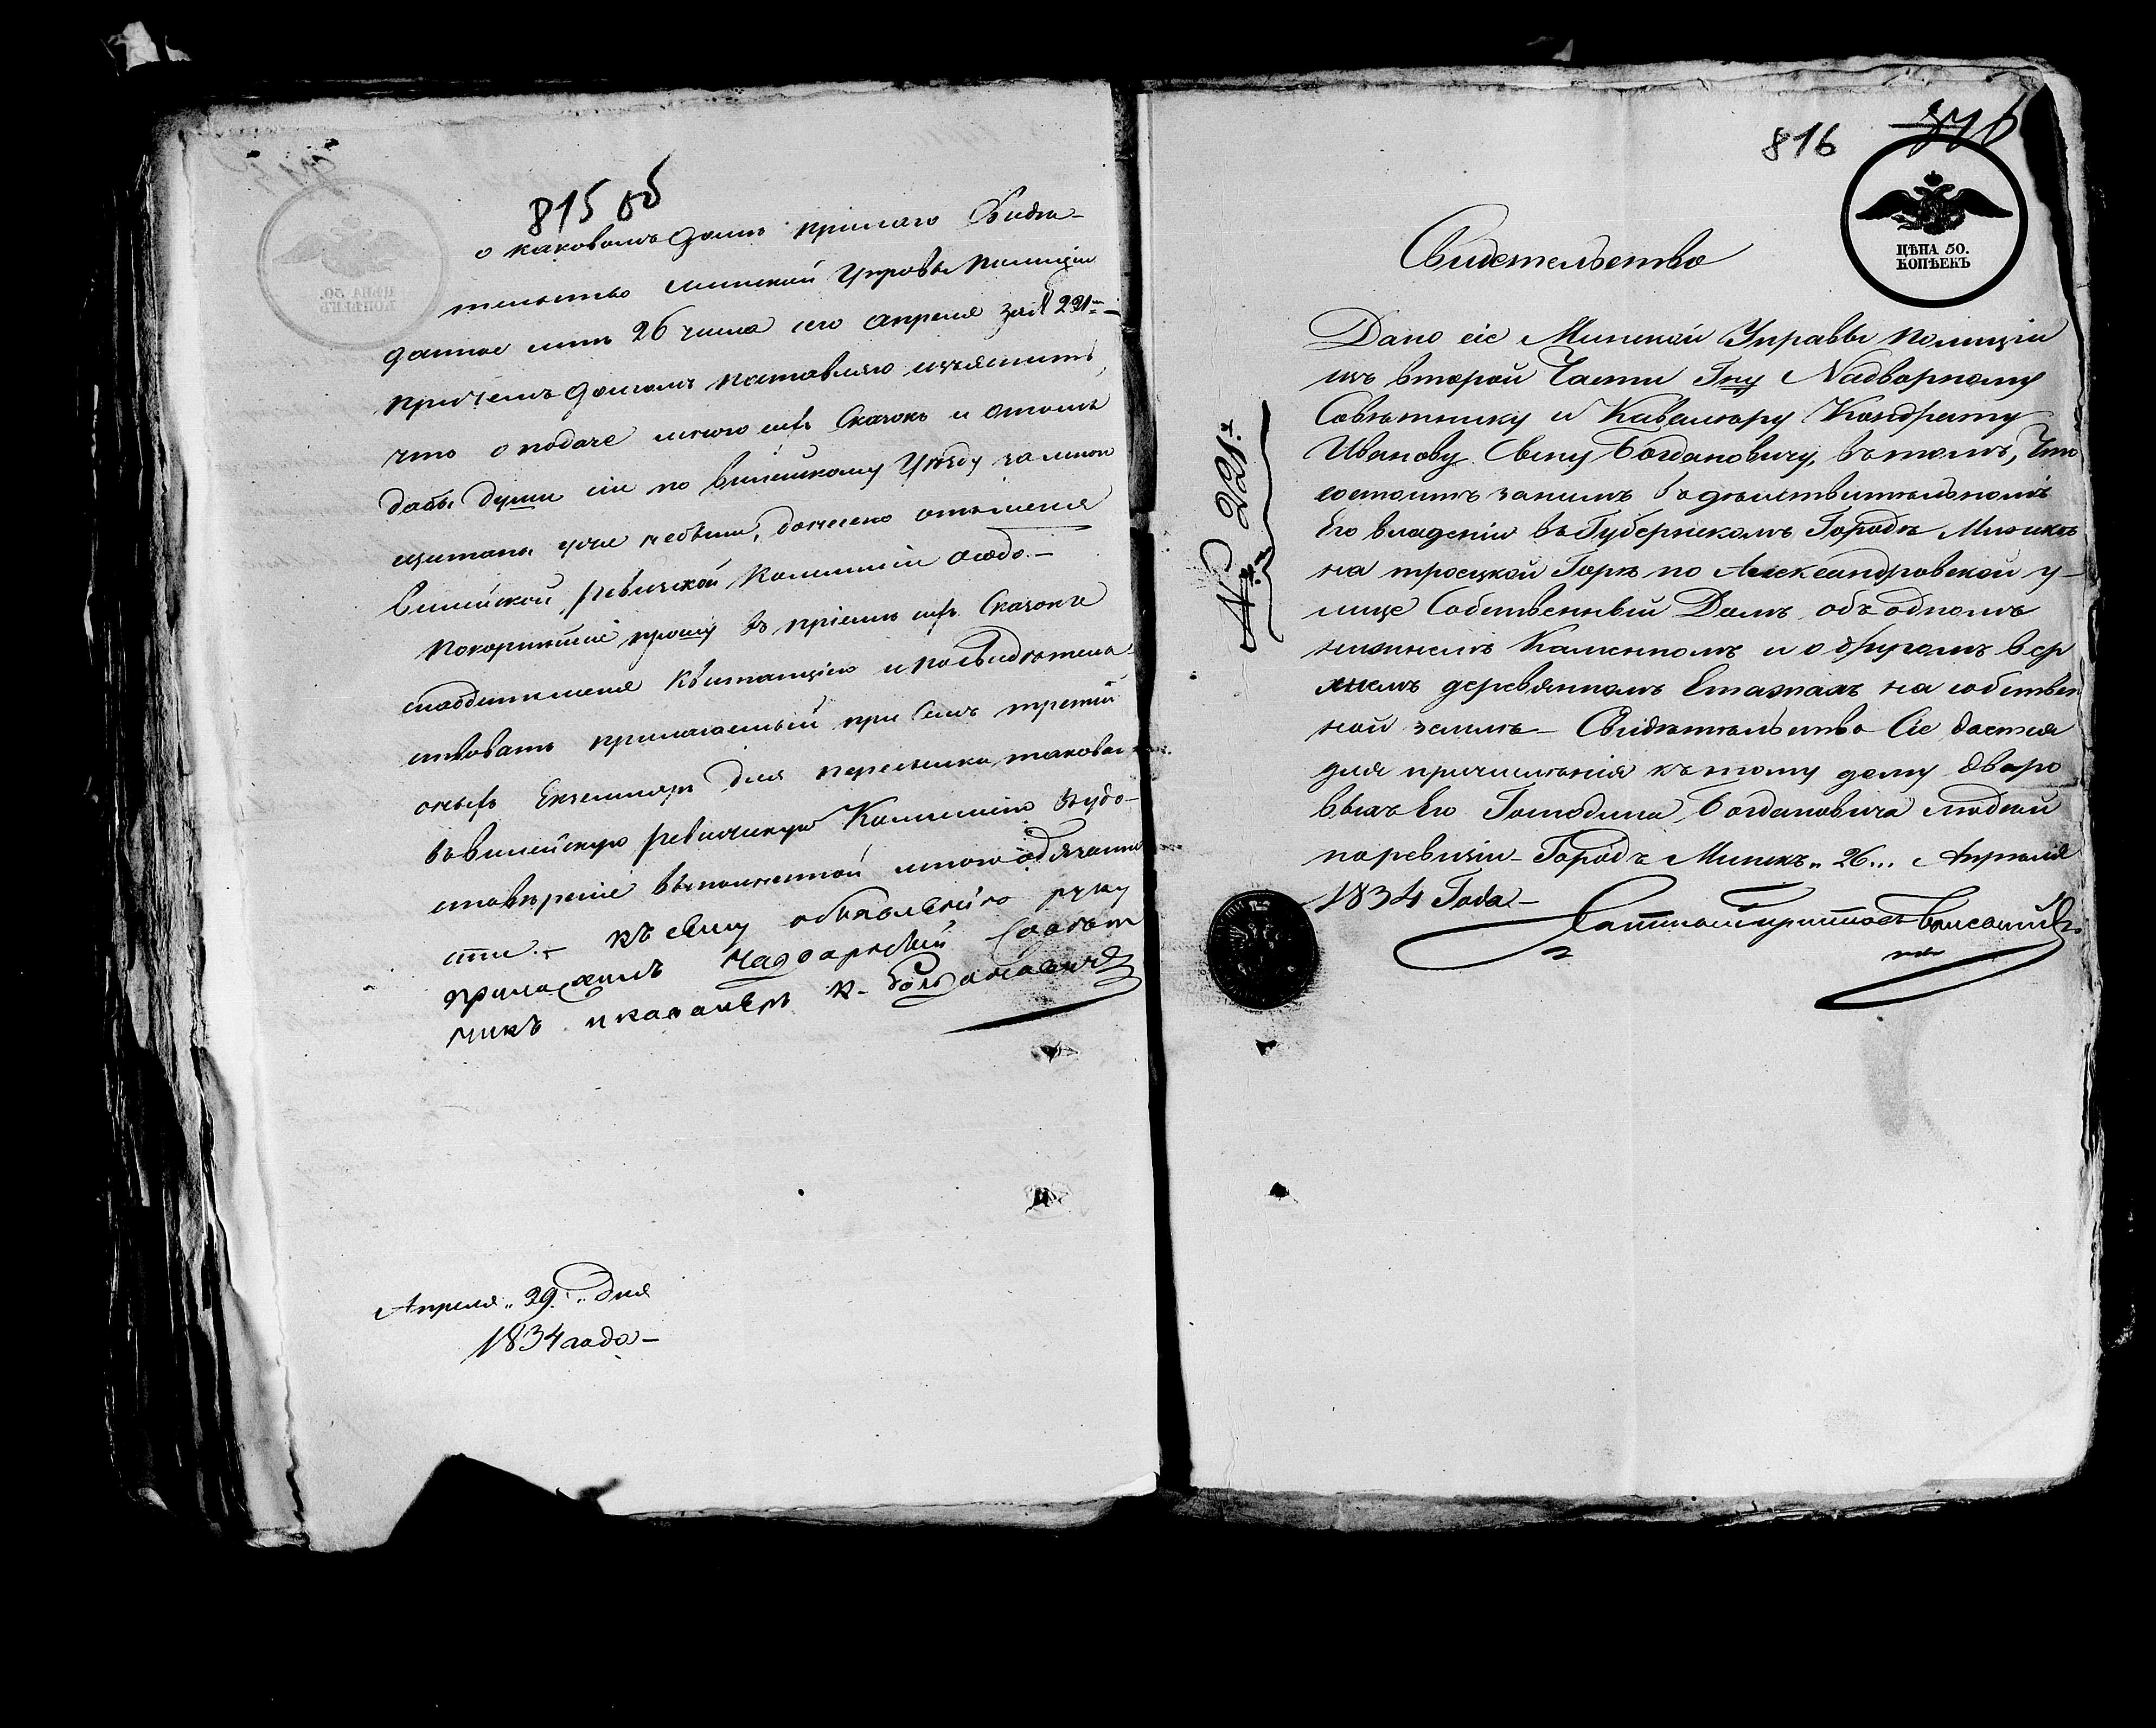 815 об
о каковомъ домѣ прилаго Свидѣ-
тельство минской Управы Полиціи
данное мнѣ 26 числа сего апреля за № 221 =
причемъ долгомъ поставляю изъяснить,
что о подаче мною сихъ Сказокъ и отомъ
дабы души сіи по вилейскому Уѣзду за мною
щитаны уже небыли, донесено отъменя
Вилейской ревизской Коммисіи особо. –
Покорнѣйше прошу въ пріемѣ сихъ Сказокъ
снабдить меня Квитанціею и посвидѣтель
ствовать прилагаемый при Семъ третій
оныхъ Екземпляръ для пересылки таковаго
въ вилейскую ревизскую Коммисію въудо-
стовѣреніе выполненной мною обязанно
сти. – къ сему объявленію руку
приложилъ надворный Совѣт
никъ икавалеръ К. Богдановичъ
Апреля „ 29. „ Дня
1834 года –
816
ЦѢНА 50.
КОПѢЕКЪ
Свидетельство
№ 221.
Дано сіе Минской Управы Полиціи
изъ второй Части Гну Надворному
Совѣтнику и Кавалеру Кондрату
Иванову Сыну Богдановичу, въ томъ, Что
состоитъ занимъ въ дѣйствительномъ
Его владеніи въ Губернскомъ Городѣ Минскѣ
на троецкой Горѣ по Александровской у-
лице Собственный Домъ объ одномъ
нижнемъ Каменномъ и о другомъ вер
хнемъ деревянномъ Етажахъ на собствен
ной землѣ – Свидѣтельство Сіе дается
для причисленія къ тому дому дворо
выхъ Его Господина Богдановича людей
по ревизіи – Городъ Минскъ „ 26 ... Апреля
1834 Года –